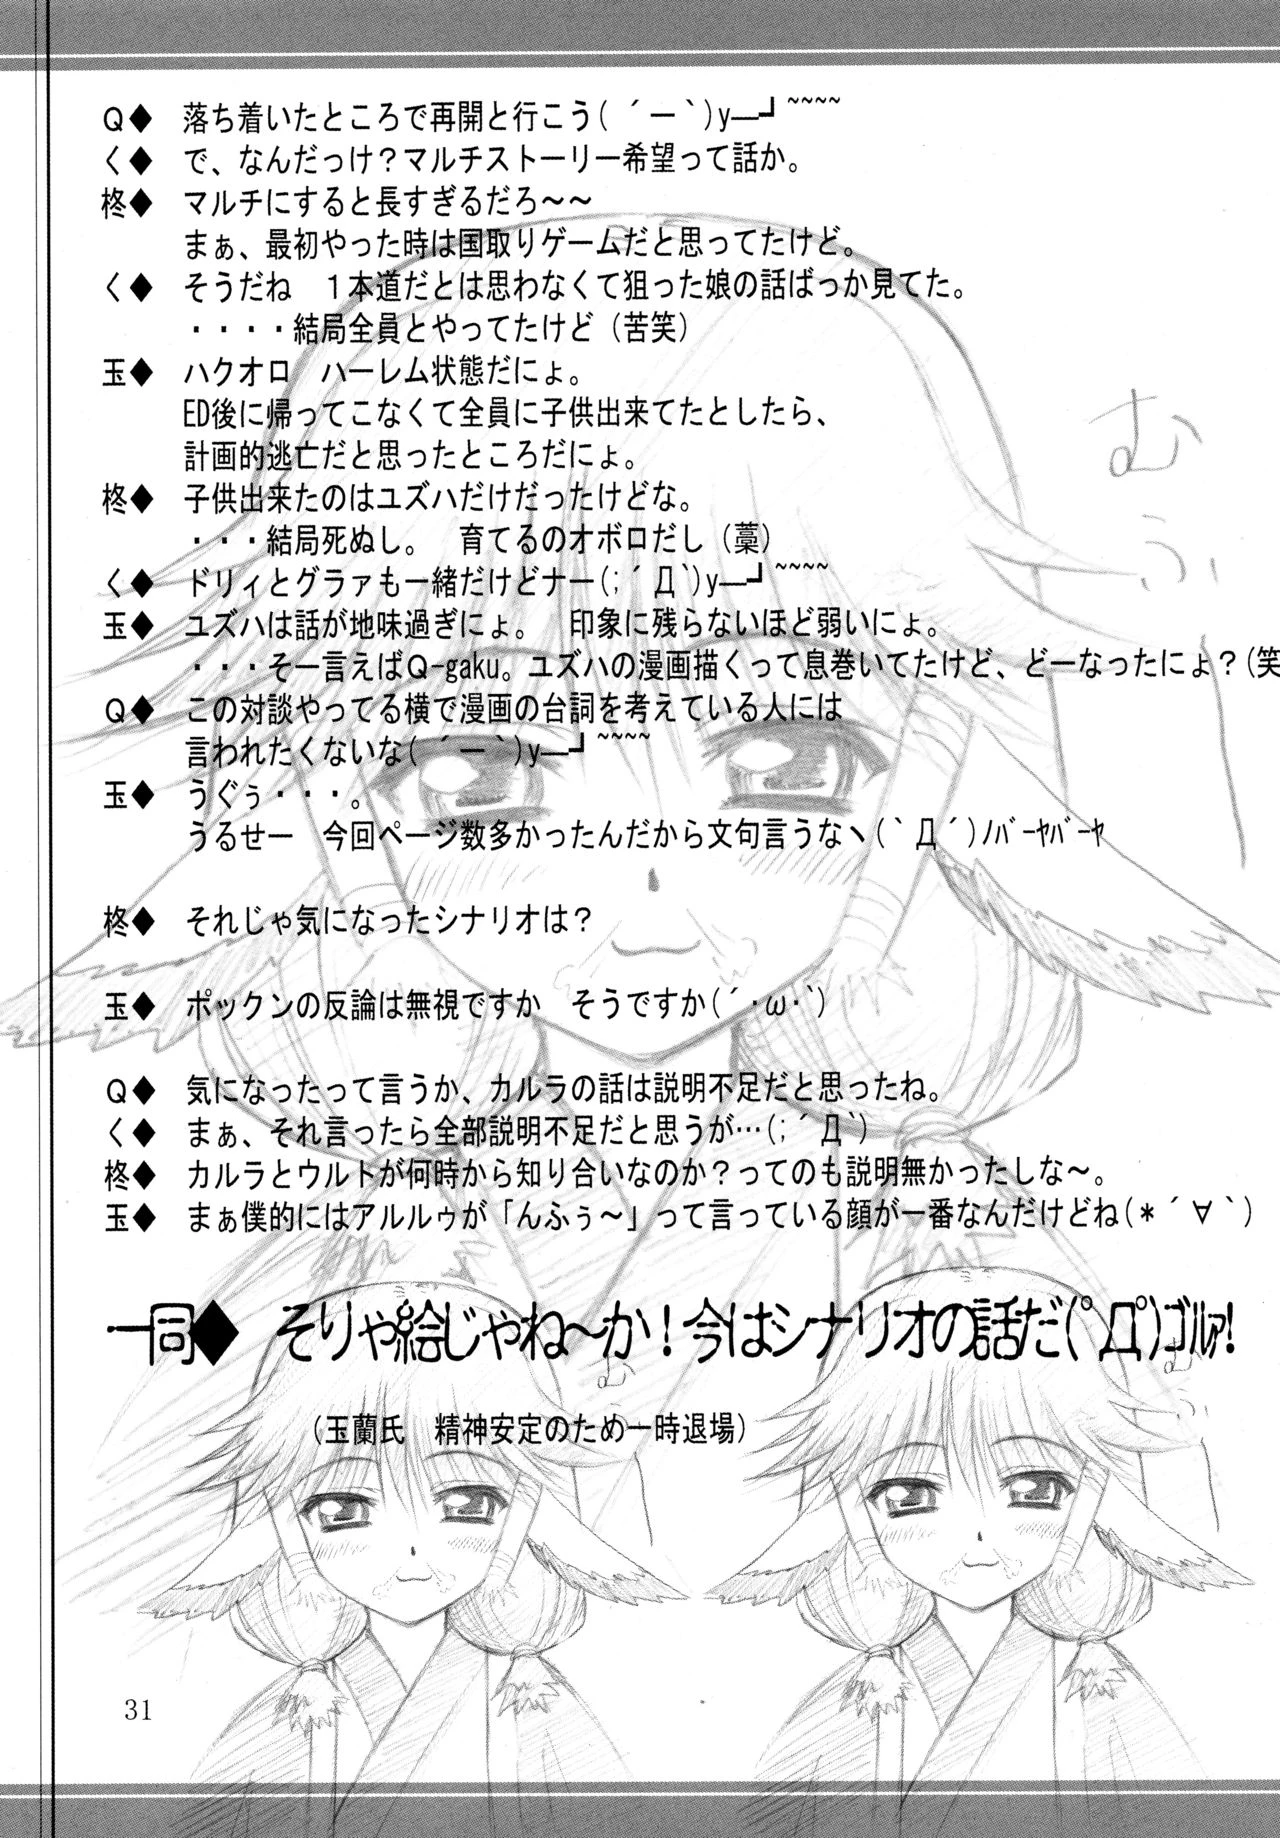 Q◆ 落ち着いたところで再開と行こう( ´ー`)y─┛~~~~
く◆ で、なんだっけ？マルチストーリー希望って話か。
柊◆ マルチにすると長すぎるだろ～～
まぁ、最初やった時は国取りゲームだと思ってたけど。
く◆ そうだね　１本道だとは思わなくて狙った娘の話ばっか見てた。
・・・・結局全員とやってたけど（苦笑）
玉◆ ハクオロ　ハーレム状態だにょ。
ED後に帰ってこなくて全員に子供出来てたとしたら、
計画的逃亡だと思ったところだにょ。
柊◆ 子供出来たのはユズハだけだったけどな。
・・・結局死ぬし。　育てるのオボロだし（藁）
く◆ ドリィとグラァも一緒だけどナー(;´Д`)y─┛~~~~
玉◆ ユズハは話が地味過ぎにょ。　印象に残らないほど弱いにょ。
・・・そー言えばQ-gaku。ユズハの漫画描くって息巻いてたけど、どーなったにょ？(笑
Q◆ この対談やってる横で漫画の台詞を考えている人には
言われたくないな( ´ー`)y─┛~~~~
玉◆ うぐぅ・・・。
うるせー　今回ページ数多かったんだから文句言うなヽ(`Д´)ﾉﾊﾞｰﾔﾊﾞｰﾔ
柊◆ それじゃ気になったシナリオは？
玉◆ ポックンの反論は無視ですか　そうですか(´･ω･`)
Q◆ 気になったって言うか、カルラの話は説明不足だと思ったね。
く◆ まぁ、それ言ったら全部説明不足だと思うが…(;´Д`)
柊◆ カルラとウルトが何時から知り合いなのか？ってのも説明無かったしな～。
玉◆ まぁ僕的にはアルルゥが「んふぅ～」って言っている顔が一番なんだけどね(＊´∀`)
一同◆ そりゃ絵じゃね～か！今はシナリオの話だ(ﾟДﾟ)ｺﾞﾙｧ!
（玉蘭氏　精神安定のため一時退場）
む
ふ
ー
む
ふ
ー
む
ふ
ー
31